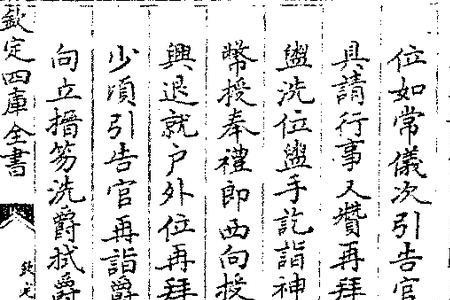 位如常儀次引告官
具請行事又贊再拜
盥洗位盥手訖詣神
幣授奉禮郎西向授
興退就戶外位再拜
少頃引告官再詣爵
向立搢笏洗爵拭爵
欽定四庫全書